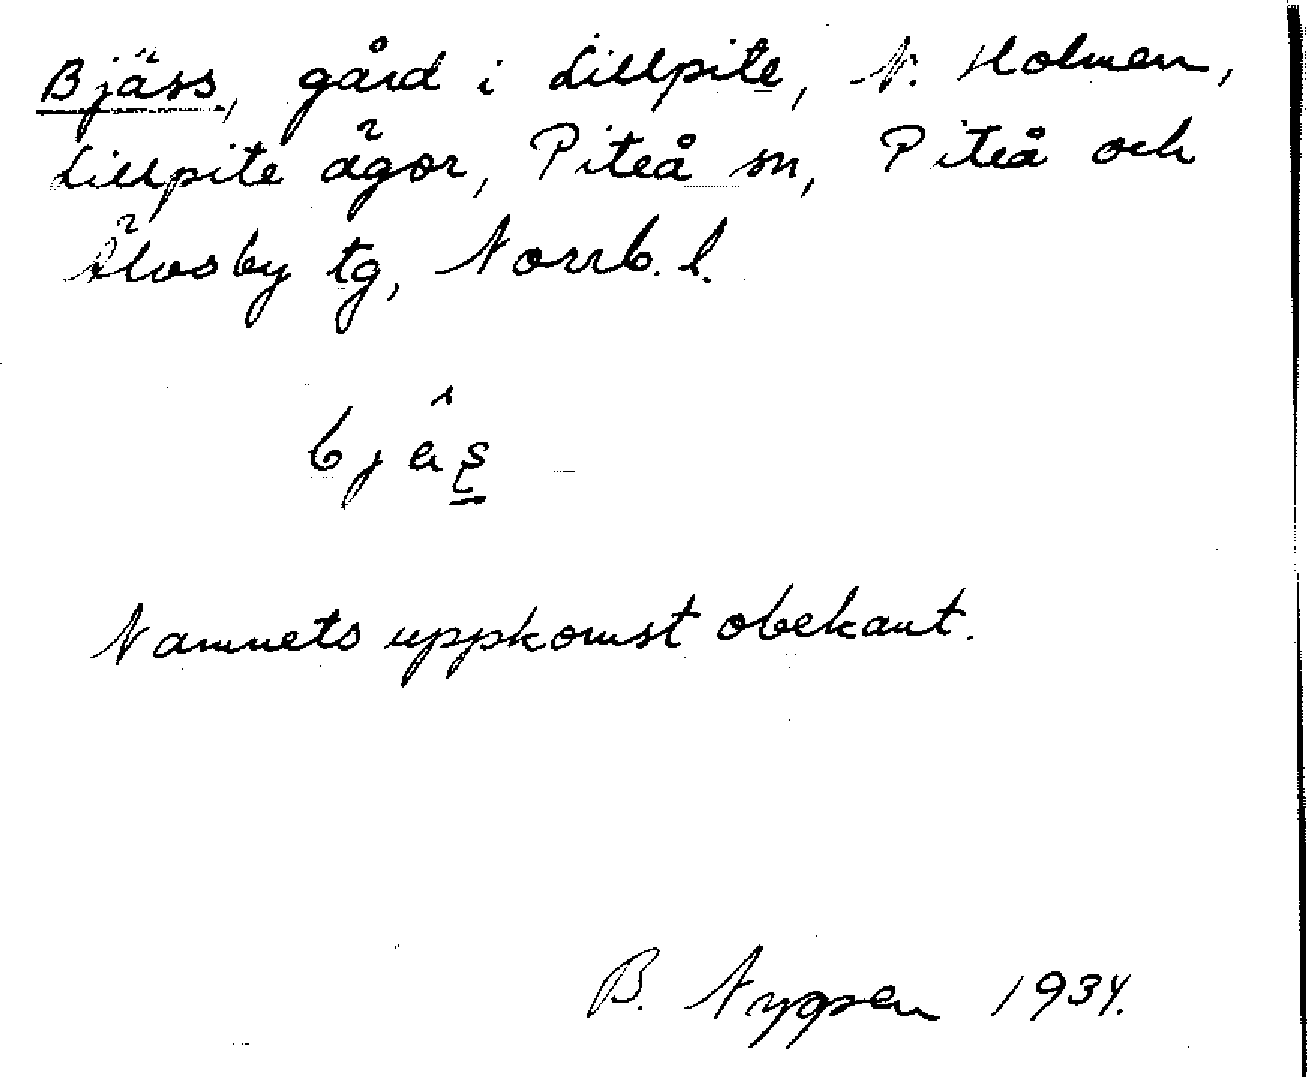 Bjäss, gård i Lillpite, N. Holmen,
Lillpite ägor, Piteå sn, Piteå och
Älvsby tg, Norrb. l.
bjäș
Namnets uppkomst obekant.
B. Nygren 1934.